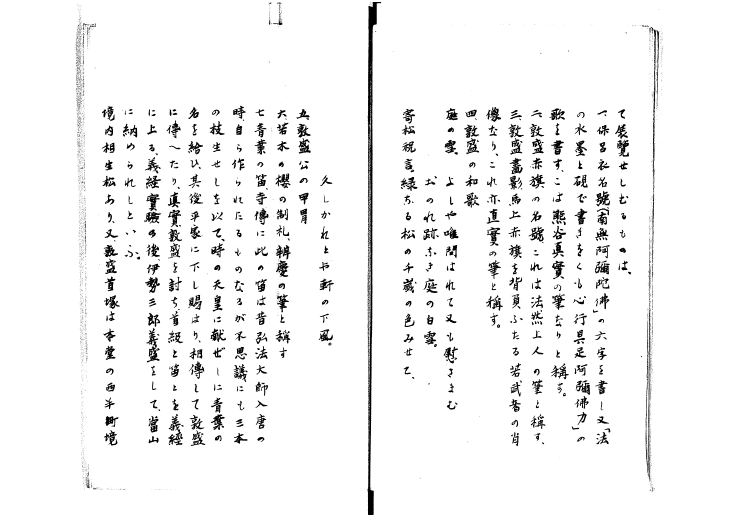 て展覧せしむるものは、
一、保呂衣名號(南無阿彌陀佛)の六字を書し又「法
の水墨と硯で書きをくも心行具足阿彌佛力」の
歌を書す、こは熊谷真實の筆なりと稱す。
二、敦盛赤旗の名號これは法然上人の筆と稱す、
三、敦盛畫影馬上赤旗を背負ふたる若武者の肖
像なり、これ亦直實の筆と稱す。
四、敦盛の和歌
庭の雲、よしや唯問はれて又も慰さまむ
おのれ跡なき庭の白雲。
寄松祝言、緑なる松の千歳の色みせて、
久しかれとや軒の下風。
五、敦盛公の甲冑
六、若木の櫻の制札、辨慶の筆と稱す
七、青葉の笛寺傳に此の笛は昔弘法大師入唐の
時、自ら作られたるものなるが不思議にも三本
の枝生せしを以て、時の天皇に献ぜしに青葉の
名を給ひ、其後平家に下し賜はり、相傳して敦盛
に傳へたり、真實、敦盛を討ち首級と笛とを義經
に上る、義經實驗の後、伊勢三郎義盛をして、當山
に納められしといふ。
境内相生松あり、又敦盛首塚は本堂の西半町境